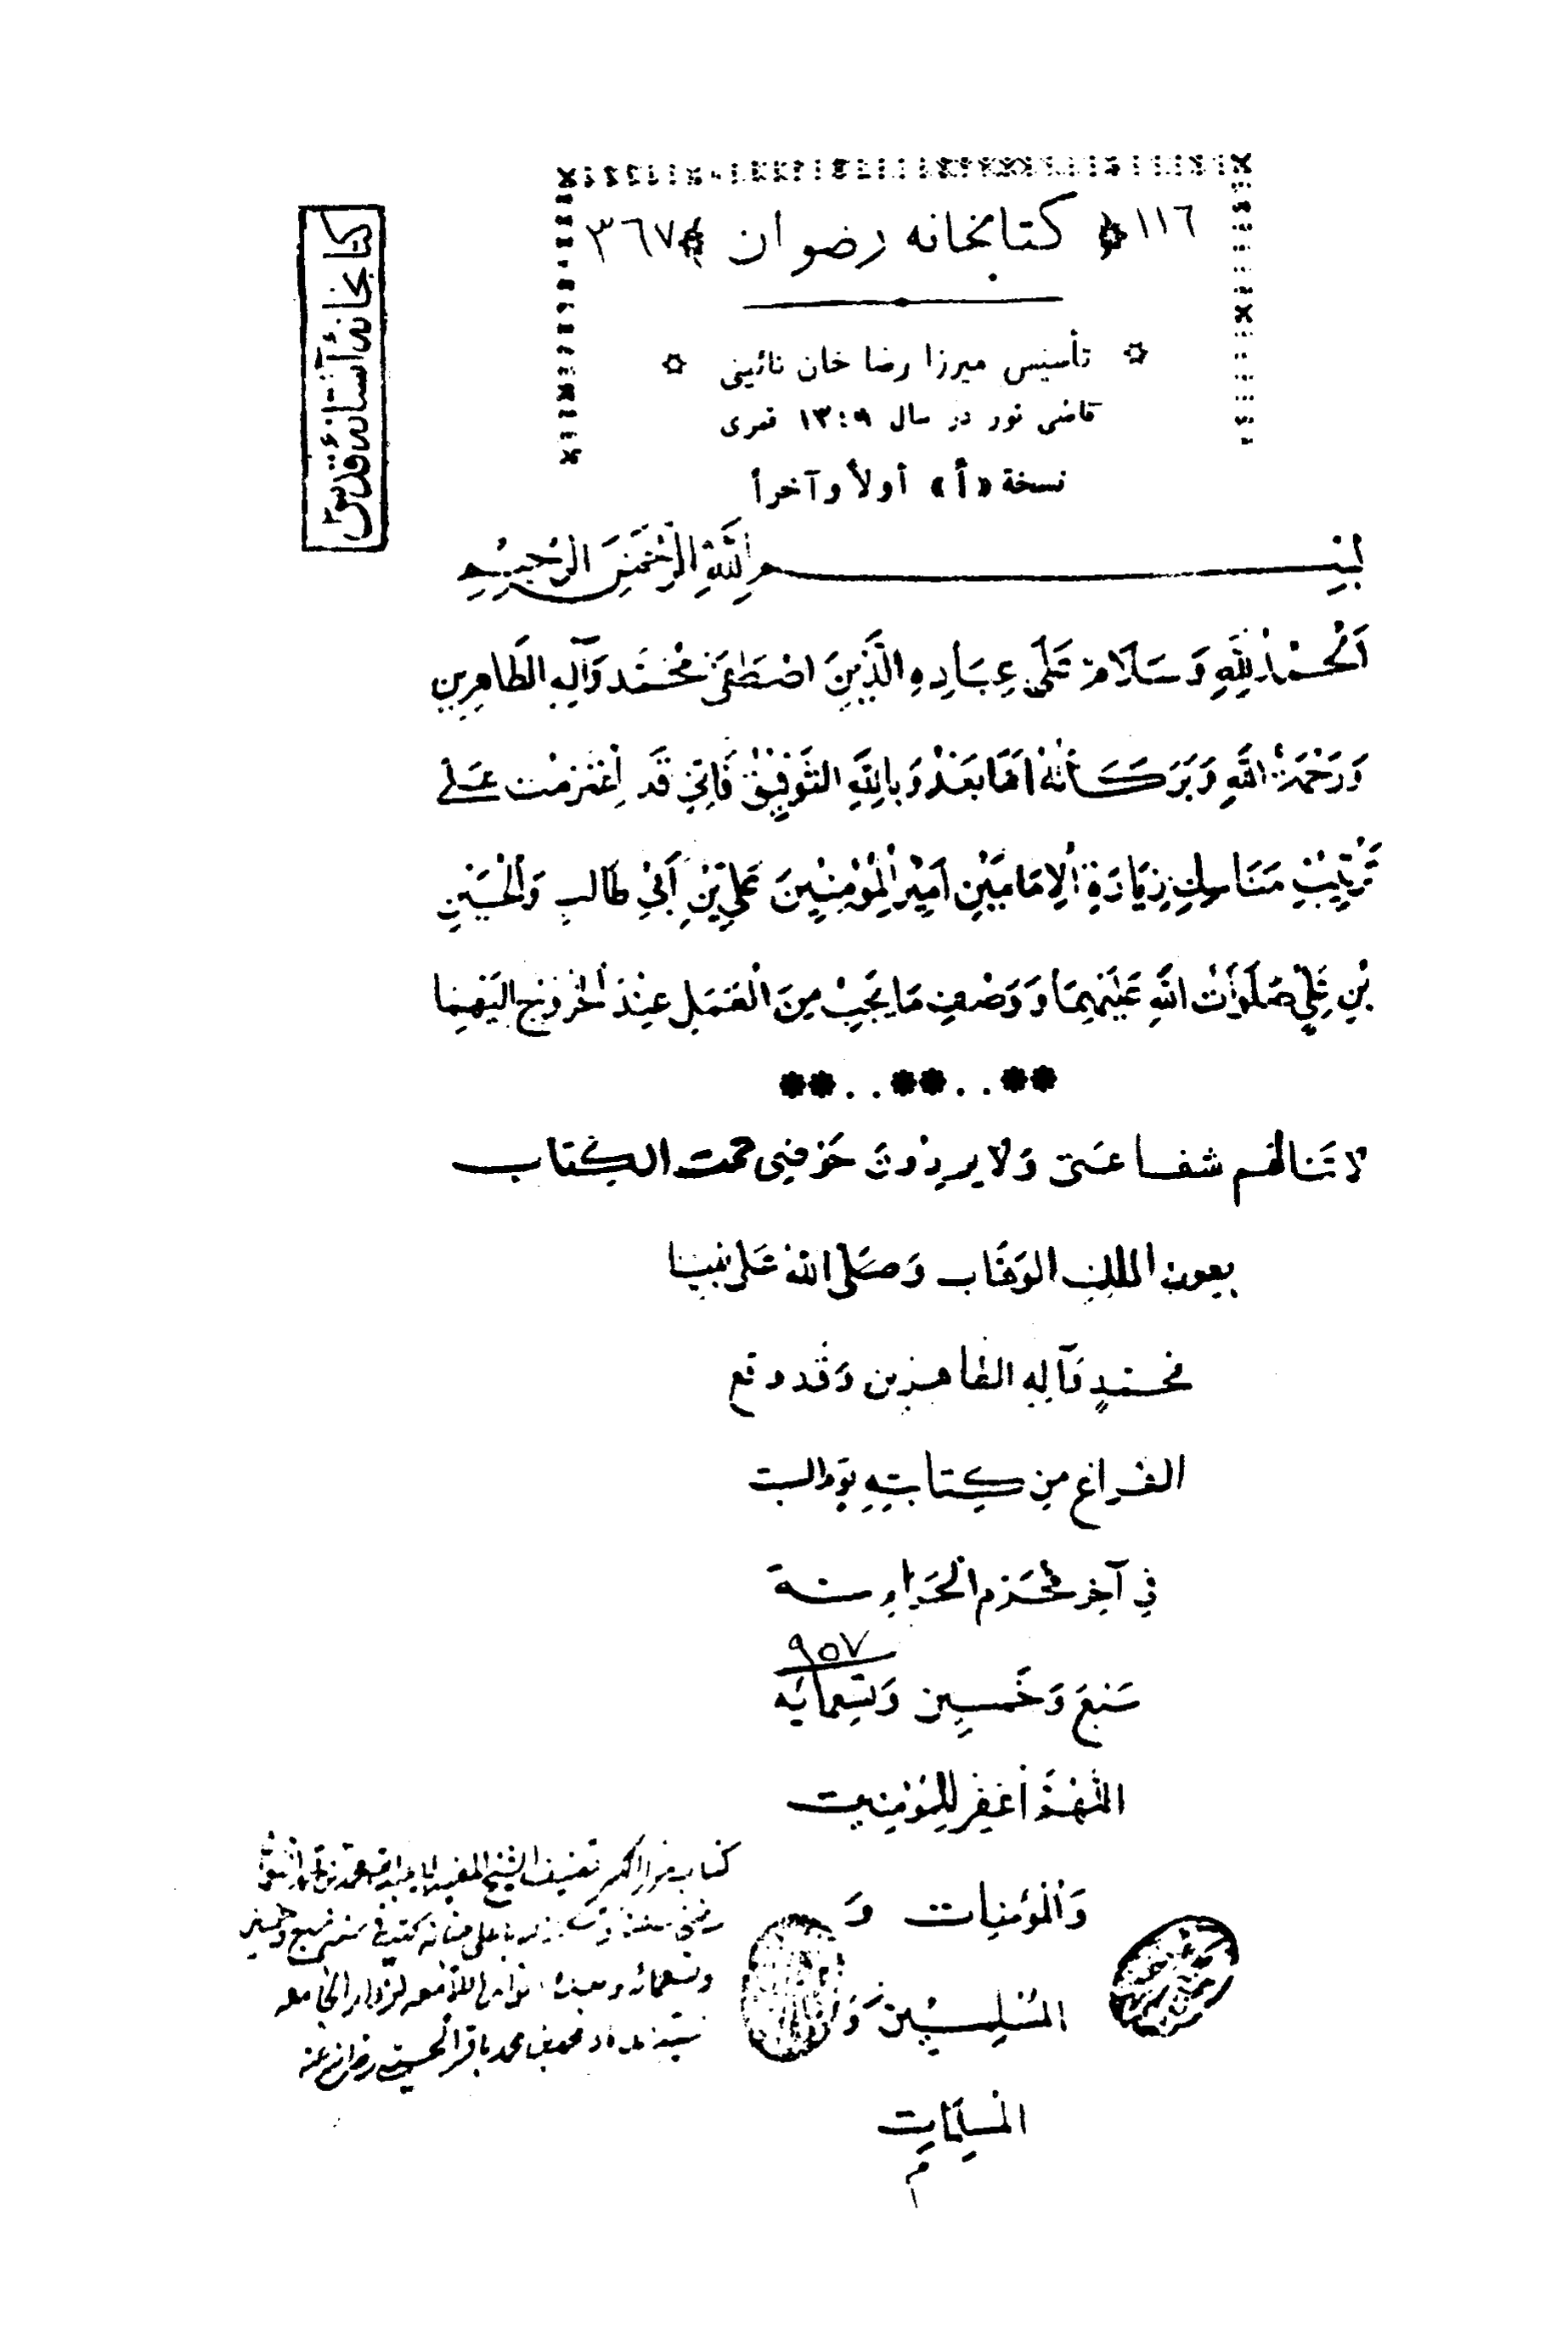 ١١٦ ﴿ كتابخانه رضوان ﴾ ٣٦٧
كتابخانهٔ آستان قدس
تأسيس ميرزا رضا خان نائينى
قاضى نور در سال ١٣٠٩ قمرى
نسخة «أ» أولاً وآخراً
بِسْمِ اللَّهِ الرَّحْمَنِ الرَّحِيمِ
اَلْحَمْدُ لِلَّهِ وَسَلَامٌ عَلَى عِبَادِهِ الَّذِينَ اصْطَفَى مُحَمَّد وَآلِهِ الطَّاهِرِين
وَرَحْمَةُ اللَّهِ وَبَرَكَاتُهُ اَمَّا بَعْدُ وَبِاللَّهِ التَّوْفِيقُ فَاِنِّي قَد اِعْتَزَمْتُ عَلَى
تَرْتِيبِ مَنَاسِكِ زِيَارَةِ الْاِمَامَيْنِ اَمِيرِ الْمُؤْمِنِينَ عَلِيِّ بْنِ اَبِي طَالِبٍ وَالْحُسَيْنِ
بْنِ عَلِيٍّ صَلَوَاتُ اللَّهِ عَلَيْهِمَا وَوَصْفِ مَا يَجِبُ مِنَ الْعَمَلِ عِنْدَ الْخُرُوجِ اِلَيْهِمَا
**..**..**
لا تنالهم شفاعتي وَلا يردون حَوْضي تمت الكتاب
بعون الملك الوَهّاب وَصَلى اللهُ عَلى نبينا
محمدٍ وَآلِهِ الطاهرين وَقد وقع
الفراغ مِن كِتابتِهِ يَوم السبت
في آخِر محَرم الحَرام سنة
٩٥٧
سَبْع وَخَمسِين وَتسعمائه
اللهُمَّ اغفِر للمُؤمِنِين
وَالمؤمنِات وَ
المُسْلِمِينَ وَ
المسلِمَات
م
كتاب تصنيف الشيخ المفيد
محمد باقر الحسيني